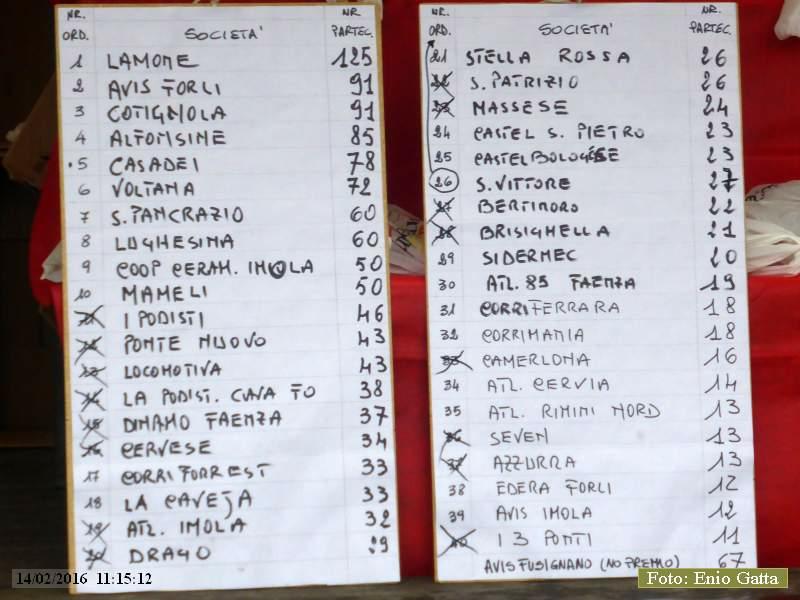 NR. NR.
ORD. SOCIETA' PARTEC.
1 LAMONE 125
2 AVIS FORLI 91
3 COTIGNOLA 91
4 ALFONSINE 85
5 CASADEI 78
6 VOLTANA 72
7 S. PANCRAZIO 60
8 LUGHESINA 60
9 COOP CERAM. IMOLA 50
10 MAMELI 50
11 I PODISTI 46
12 PONTE NUOVO 43
13 LOCOMOTIVA 43
14 LA PODIST. CAVA FO 38
15 DINAMO FAENZA 37
16 CERVESE 34
17 CORRIFORREST 33
18 LA CAVEJA 33
19 ATL. IMOLA 32
20 DRAGO 29
NR. NR.
ORD. SOCIETA' PARTEC.
21 STELLA ROSSA 26
22 S. PATRIZIO 26
23 MASSESE 24
24 CASTEL S. PIETRO 23
25 CASTELBOLOGNESE 23
26 S. VITTORE 27
27 BERTINORO 22
28 BRISIGHELLA 21
29 SIDERMEC 20
30 ATL. 85 FAENZA 19
31 CORRIFERRARA 18
32 CORRIMANIA 18
33 CAMERLONA 16
34 ATL. CERVIA 14
35 ATL. RIMINI NORD 13
36 SEVEN 13
37 AZZURRA 13
38 EDERA FORLI 12
39 AVIS IMOLA 12
40 I 3 PONTI 11
AVIS FUSIGNANO (NO PREMIO) 67
14/02/2016 11:15:12
Foto: Enio Gatta